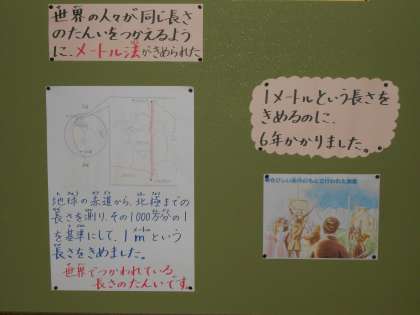 世界の人々が同じ長さ
のたんいをつかえるよう
に、メートル法がきめられた
1メートルという長さを
きめるのに、
6年かかりました。
地球の赤道から、北極までの
長さを測り、その1000万分の1
を基準にして、1mという
長さをきめました。
世界でつかわれている、
長さのたんいです。